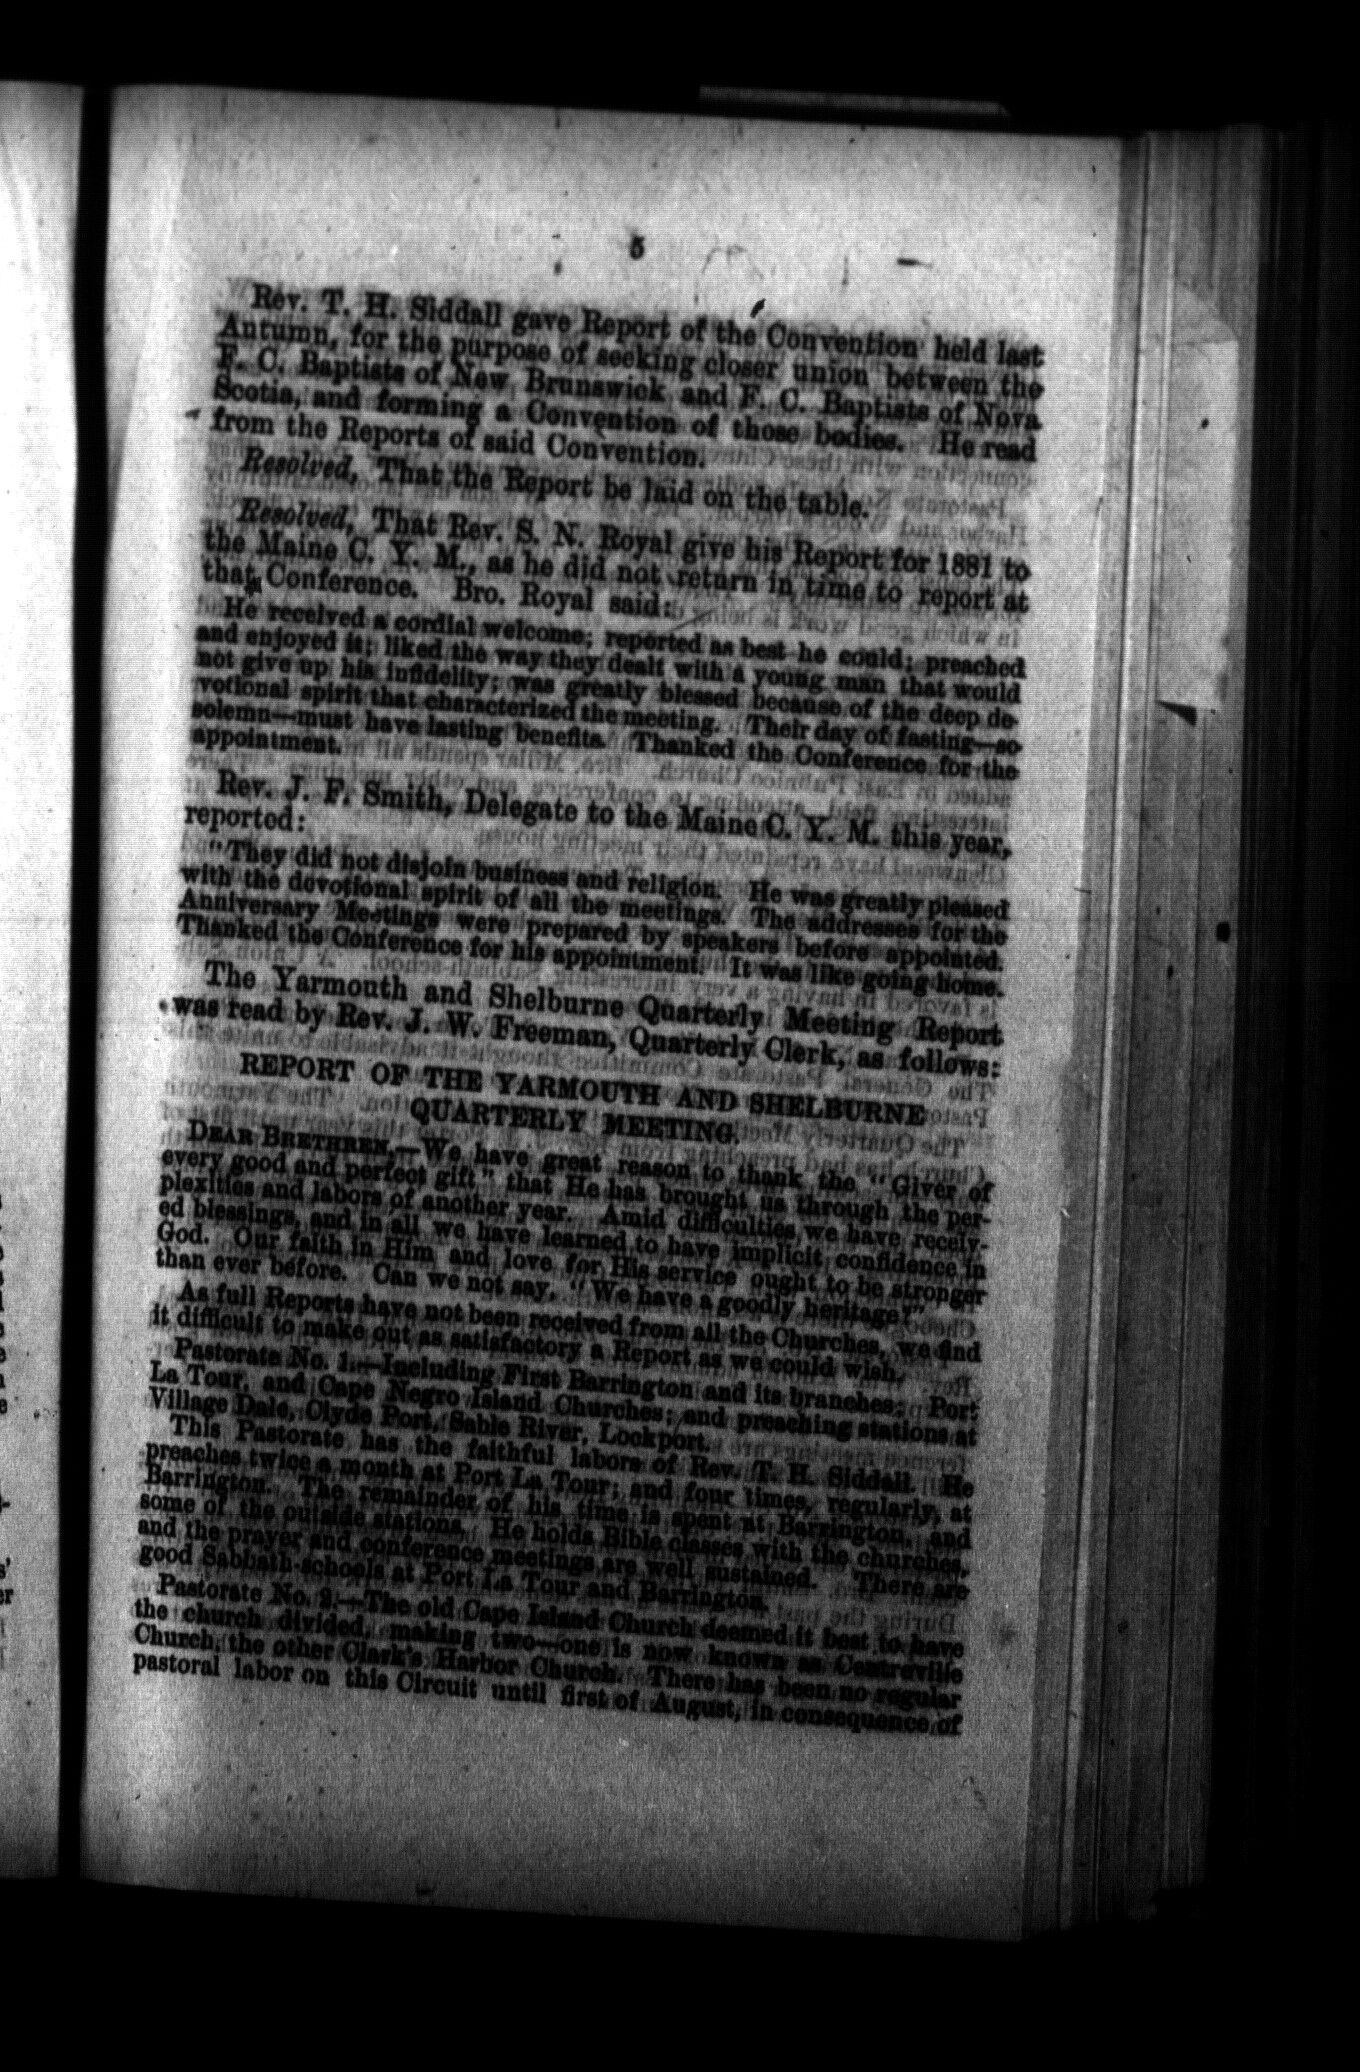 5
Rev. T. H. Siddall gave Report of the Convention held last
Antumn, for the purpose of seeking closer union between the
F. C. Baptists of New Brunswick and F. C. Baptists of Nova
Scotia, and forming a Convention of those bodies. He read
from the Reports of said Convention.
Resolved, That the Report be laid on the table.
Resolved, That Rev. S. N. Royal give his Report for 1881 to
the Maine C. Y. M., as he did not return in time to report at
that Conference. Bro. Royal said:
He received a cordial welcome; reported as best he could; preached
and enjoyed it; liked the way they dealt with a young man that would
not give up his infidelity; was greatly blessed because of the deep de-
votional spirit that characterized the meeting. Their day of fasting—so
solemn—must have lasting benefits. Thanked the Conference for the
appointment.
Rev. J. F. Smith, Delegate to the Maine C. Y. M. this year,
reported:
"They did not disjoin business and religion. He was greatly pleased
with the devotional spirit of all the meetings. The addresses for the
Anniversary Meetings were prepared by speakers before appointed.
Thanked the Conference for his appointment. It was like going home.
The Yarmouth and Shelburne Quarterly Meeting Report
was read by Rev. J. W. Freeman, Quarterly Clerk, as follows:
REPORT OF THE YARMOUTH AND SHELBURNE
QUARTERLY MEETING.
DEAR BRETHREN,—We have great reason to thank the "Giver of
every good and perfect gift" that He has brought us through the per-
plexities and labors of another year. Amid difficulties we have receiv-
ed blessings, and in all we have learned to have implicit confidence in
God. Our faith in Him and love for His service ought to be stronger
than ever before. Can we not say, "We have a goodly heritage?"
As full Reports have not been received from all the Churches, we find
it difficult to make out as satisfactory a Report as we could wish.
Pastorate No. 1.—Including First Barrington and its branches; Port
La Tour, and Cape Negro Island Churches; and preaching stations at
Village Dale, Clyde Port, Sable River, Lockport.
This Pastorate has the faithful labors of Rev. T. H. Siddall. He
preaches twice a month at Port La Tour; and four times, regularly, at
Barrington. The remainder of his time is spent at Barrington, and
some of the outside stations. He holds Bible classes with the churches,
and the prayer and conference meetings are well sustained. There are
good Sabbath-schools at Port La Tour and Barrington.
Pastorate No. 2.—The old Cape Island Church deemed it best to have
the church divided, making two—one is now known as Centreville
Church, the other Clark's Harbor Church. There has been no regular
pastoral labor on this Circuit until first of August, in consequence of